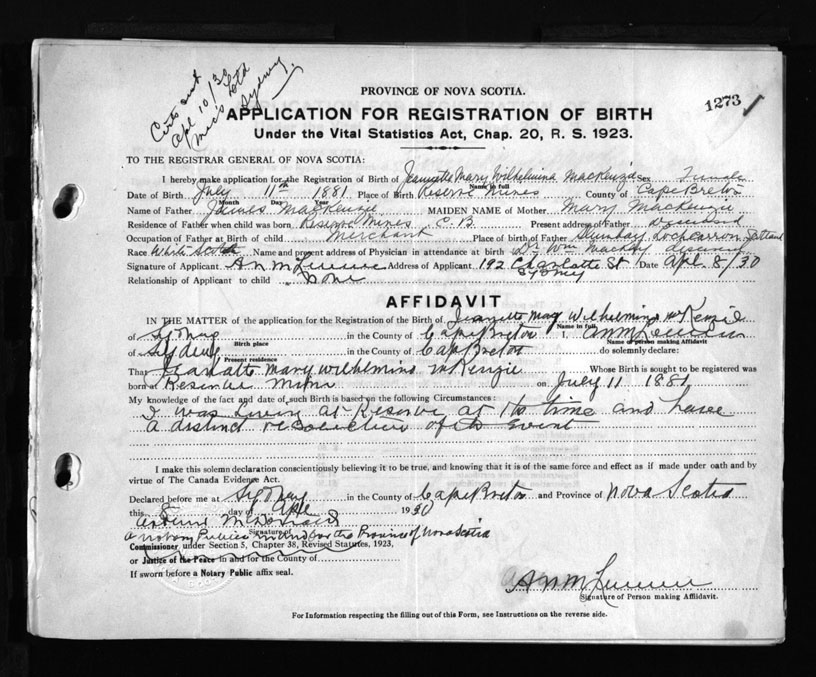 Certs sent
Apl 10/30
Sydney
PROVINCE OF NOVA SCOTIA.
1273
APPLICATION FOR REGISTRATION OF BIRTH
Under the Vital Statistics Act, Chap. 20, R. S. 1923.
TO THE REGISTRAR GENERAL OF NOVA SCOTIA:
I hereby make application for the Registration of Birth of Jeannette Mary Wilhelmina MacKenzie Sex Female
Name in full
Date of Birth July 11th 1881 Place of Birth Reserve Mines County of Cape Breton
Month Day Year
Name of Father James MacKenzie MAIDEN NAME of Mother Mary MacKenzie
Residence of Father when child was born Reserve Mines C. B. Present address of Father Deceased
Occupation of Father at Birth of child Merchant Place of birth of Father Lochcarron Scotland
Race White Scotch Name and present address of Physician in attendance at birth Dr Wm MacKay deceased
Signature of Applicant A N M Address of Applicant 192 Charlotte St Date Apl. 8/30
Sydney
Relationship of Applicant to child None
AFFIDAVIT
IN THE MATTER of the application for the Registration of the Birth of Jeanette May Wilhelmina McKenzie
Name in full
of Sydney in the County of Cape Breton I, A N M
Birth place Name of person making Affidavit
of Sydney in the County of Cape Breton do solemnly declare:
Present residence
That Jeanatte Mary Wilhelmina McKenzie Whose Birth is sought to be registered was
born at Reserve Mines on July 11 1881
My knowledge of the fact and date of such Birth is based on the following Circumstances:
I was living at Reserve at the time and have
a distinct recollection of the event
I make this solemn declaration conscientiously believing it to be true, and knowing that it is of the same force and effect as if made under oath and by
virtue of The Canada Evidence Act.
Declared before me at Sydney in the County of Cape Breton and Province of Nova Scotia
this 8 day of Apl 1930
Arthur
Signature of
A Notary Public in and for the Province of Nova Scotia
Commissioner under Section 5, Chapter 38, Revised Statutes, 1923,
or Justice of the Peace in and for the County of
If sworn before a Notary Public affix seal.
A N M
Signature of Person making Affidavit.
For Information respecting the filling out of this Form, see Instructions on the reverse side.